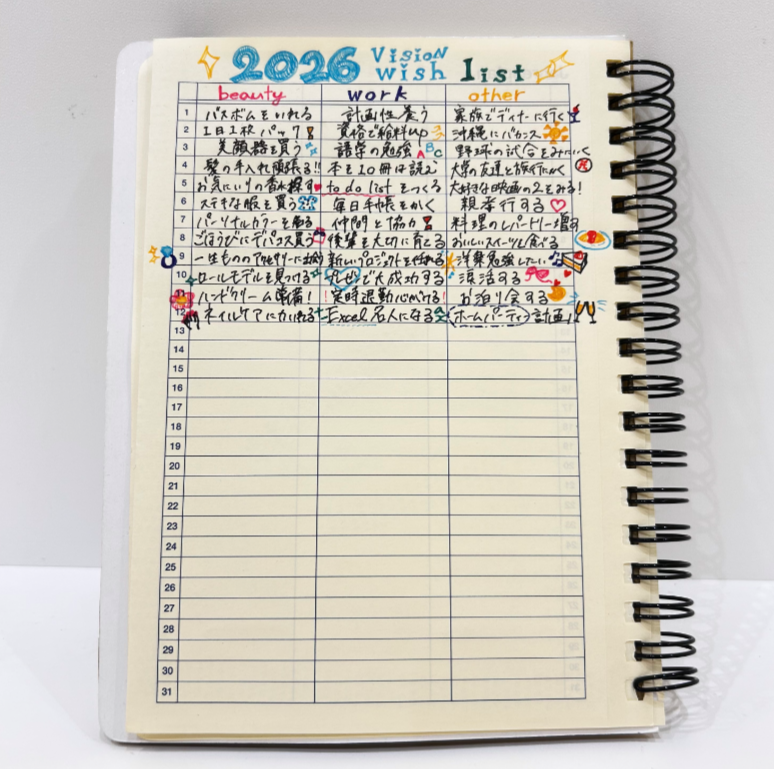 2026 Vision wish list
beauty work other
1 バスボムをいれる 計画性養う 家族でディナーに行く
2 1日1枚パック 資格で給料up 沖縄にバカンス
3 美顔器を買う 語学の勉強 ABC 野球の試合をみにいく
4 髪の手入れ頑張る!! 本を10冊は読む 大学の友達と旅行いく
5 お気にいりの香水探す to do listをつくる 大好きな映画の2をみる!
6 ステキな服を買う 毎日手帳をかく 親孝行する
7 パーソナルカラーを 仲間と協力 料理のレパートリー増す
8 ごほうびにデパコス買う 後輩を大切に育てる おいしいスイーツを食べる
9 一生もののアクセサリー 新しいプロジェクトを 洋裁勉強したい
10 ロールモデルを見つける プレゼで大成功する 涙活する
11 ハンドクリーム準備! 定時退勤心がける! お泊り会する
12 ネイルケアに力いれる Excel名人になる ホームパーティ計画!
13
14
15
16
17
18
19
20
21
22
23
24
25
26
27
28
29
30
31